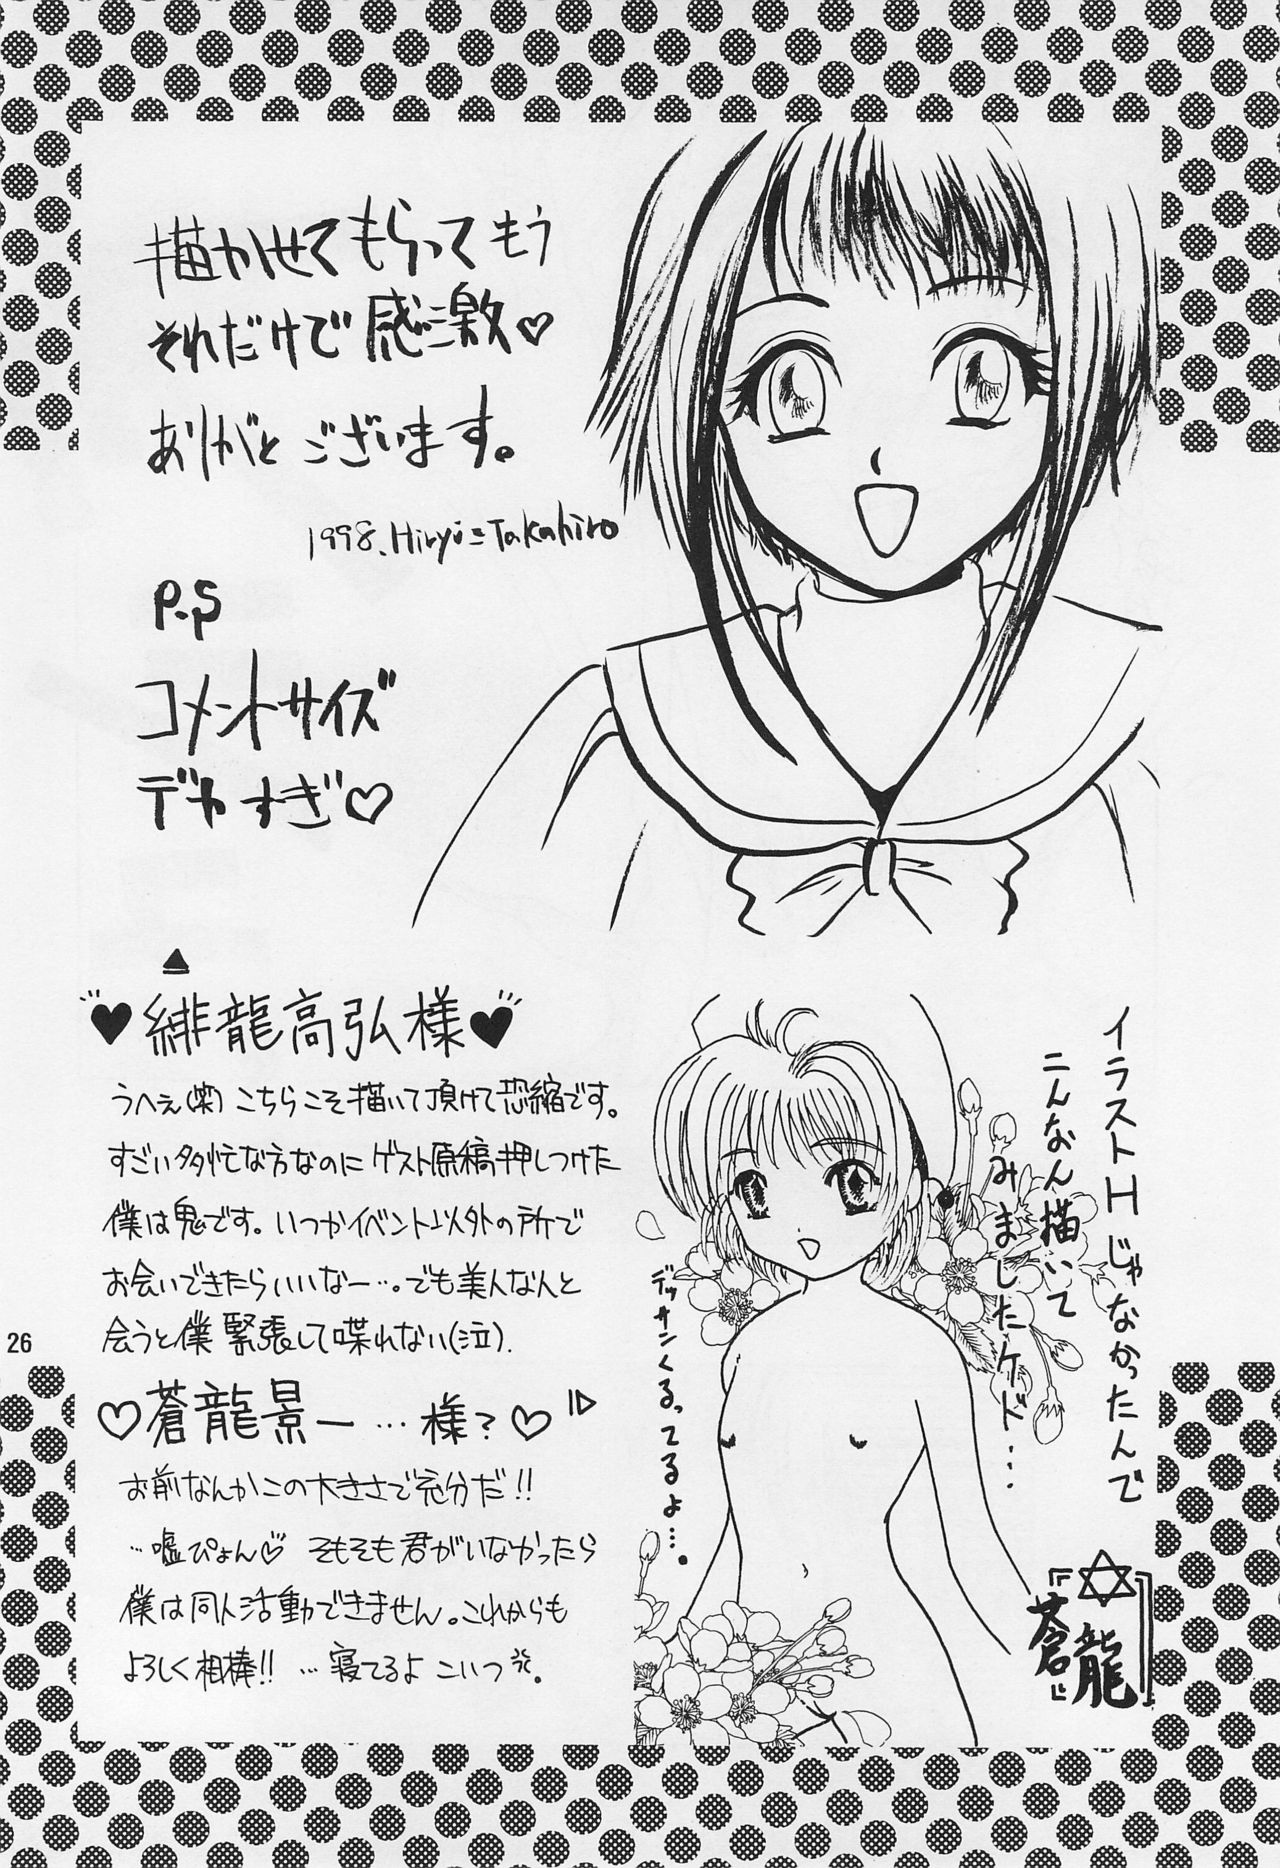 描かせてもらってもう
それだけで感激♡
ありがとございます。
1998. Hiryu=Takahiro
P.S
コメントサイズ
デカすぎ♡
▲
♥緋龍高弘様♥
うへぇ(笑)こちらこそ描いて頂けて恐縮です。
すごい多忙な方なのにゲスト原稿押しつけた
僕は鬼です。いつかイベント以外の所で
お会いできたらいいなー…。でも美人なんと
会うと僕緊張して喋れない(泣).
♡蒼龍景一…様?♡
お前なんかこの大きさで充分だ!!
…嘘ぴょん♡ そもそも君がいなかったら
僕は同人活動できません。これからも
よろしく相棒!! …寝てるよこいつ
イラストHじゃなかったんで
こんなん描いて
みましたケド…
デッサンくるってるよ…。
『蒼龍』
26